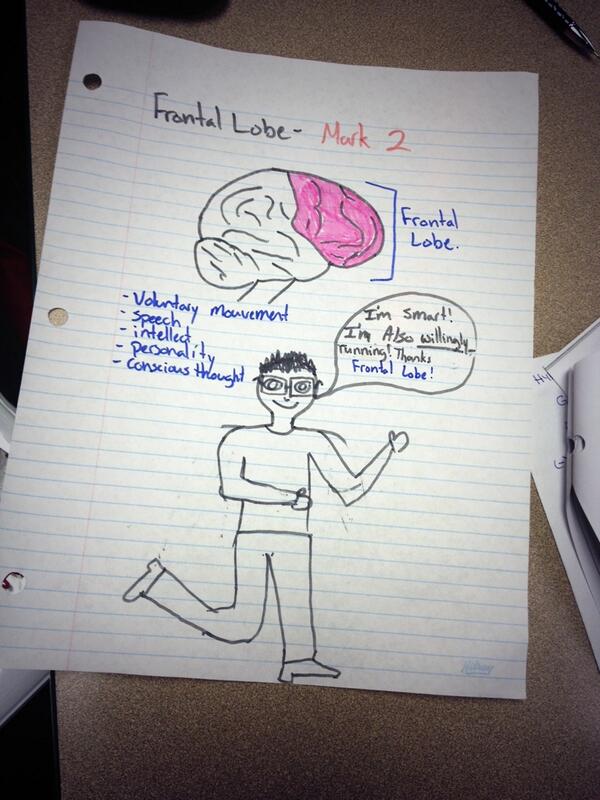 Frontal Lobe - Mark 2
Frontal
Lobe.
- Voluntary mouvement
- speech
- intellect
- personality
- Conscious thought
I'm smart!
I'm Also willingly
running! Thanks
Frontal Lobe!
Hilroy